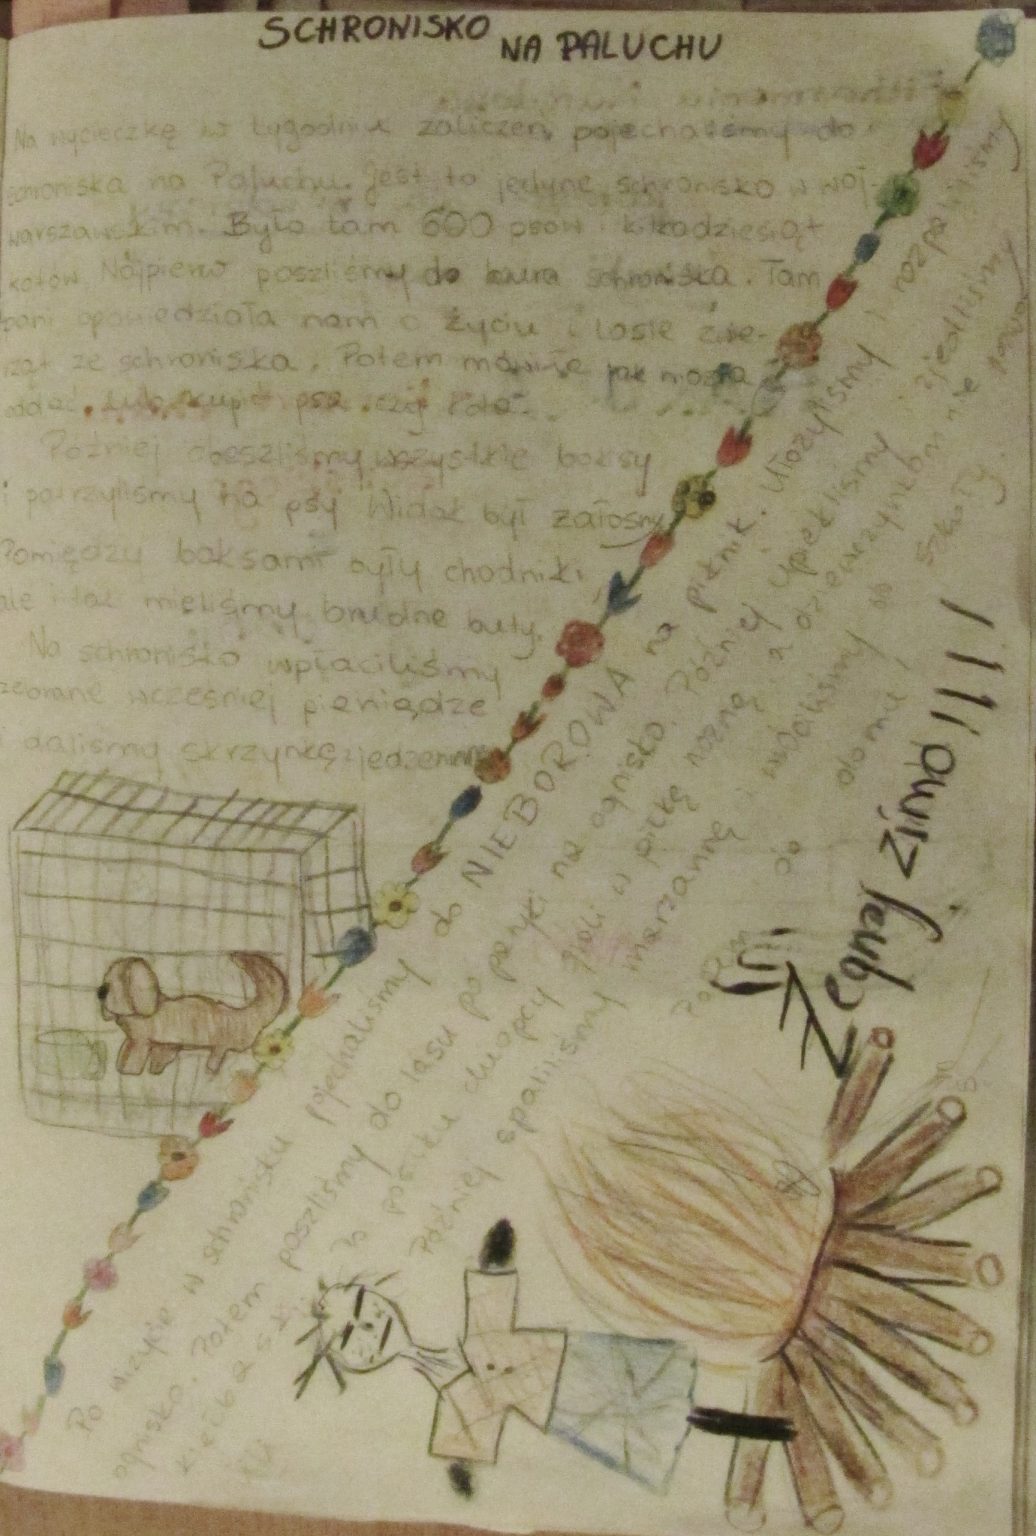 SCHRONISKO NA PALUCHU
Na wycieczkę w tygodniu zaliczeń pojechaliśmy do
schroniska na Paluchu. Jest to jedyne schronisko w woj.
warszawskim. Było tam 600 psów i kilkadziesiąt
kotów. Najpierw poszliśmy do biura schroniska. Tam
pani opowiedziała nam o życiu i losie zwie-
rząt ze schroniska. Potem mówiła jak można
oddać lub kupić psa czy kota.
Później obeszliśmy wszystkie boksy
i patrzyliśmy na psy. Widok był żałosny.
Pomiędzy boksami były chodniki
ale i tak mieliśmy brudne buty.
Na schronisko wpłaciliśmy
zebrane wcześniej pieniądze
i daliśmy skrzynkę z jedzeniem
Po wizycie w schronisku pojechaliśmy do NIEBOROWA na piknik. Ułożyliśmy i rozpaliliśmy
ognisko. Potem poszliśmy do lasu po patyki na ognisko. Później upiekliśmy i zjedliśmy
kiełbaski. Po posiłku chłopcy grali w piłkę nożną a dziewczynkom nie
Później spaliliśmy marzannę i wróciliśmy do szkoły.
Potem do domu